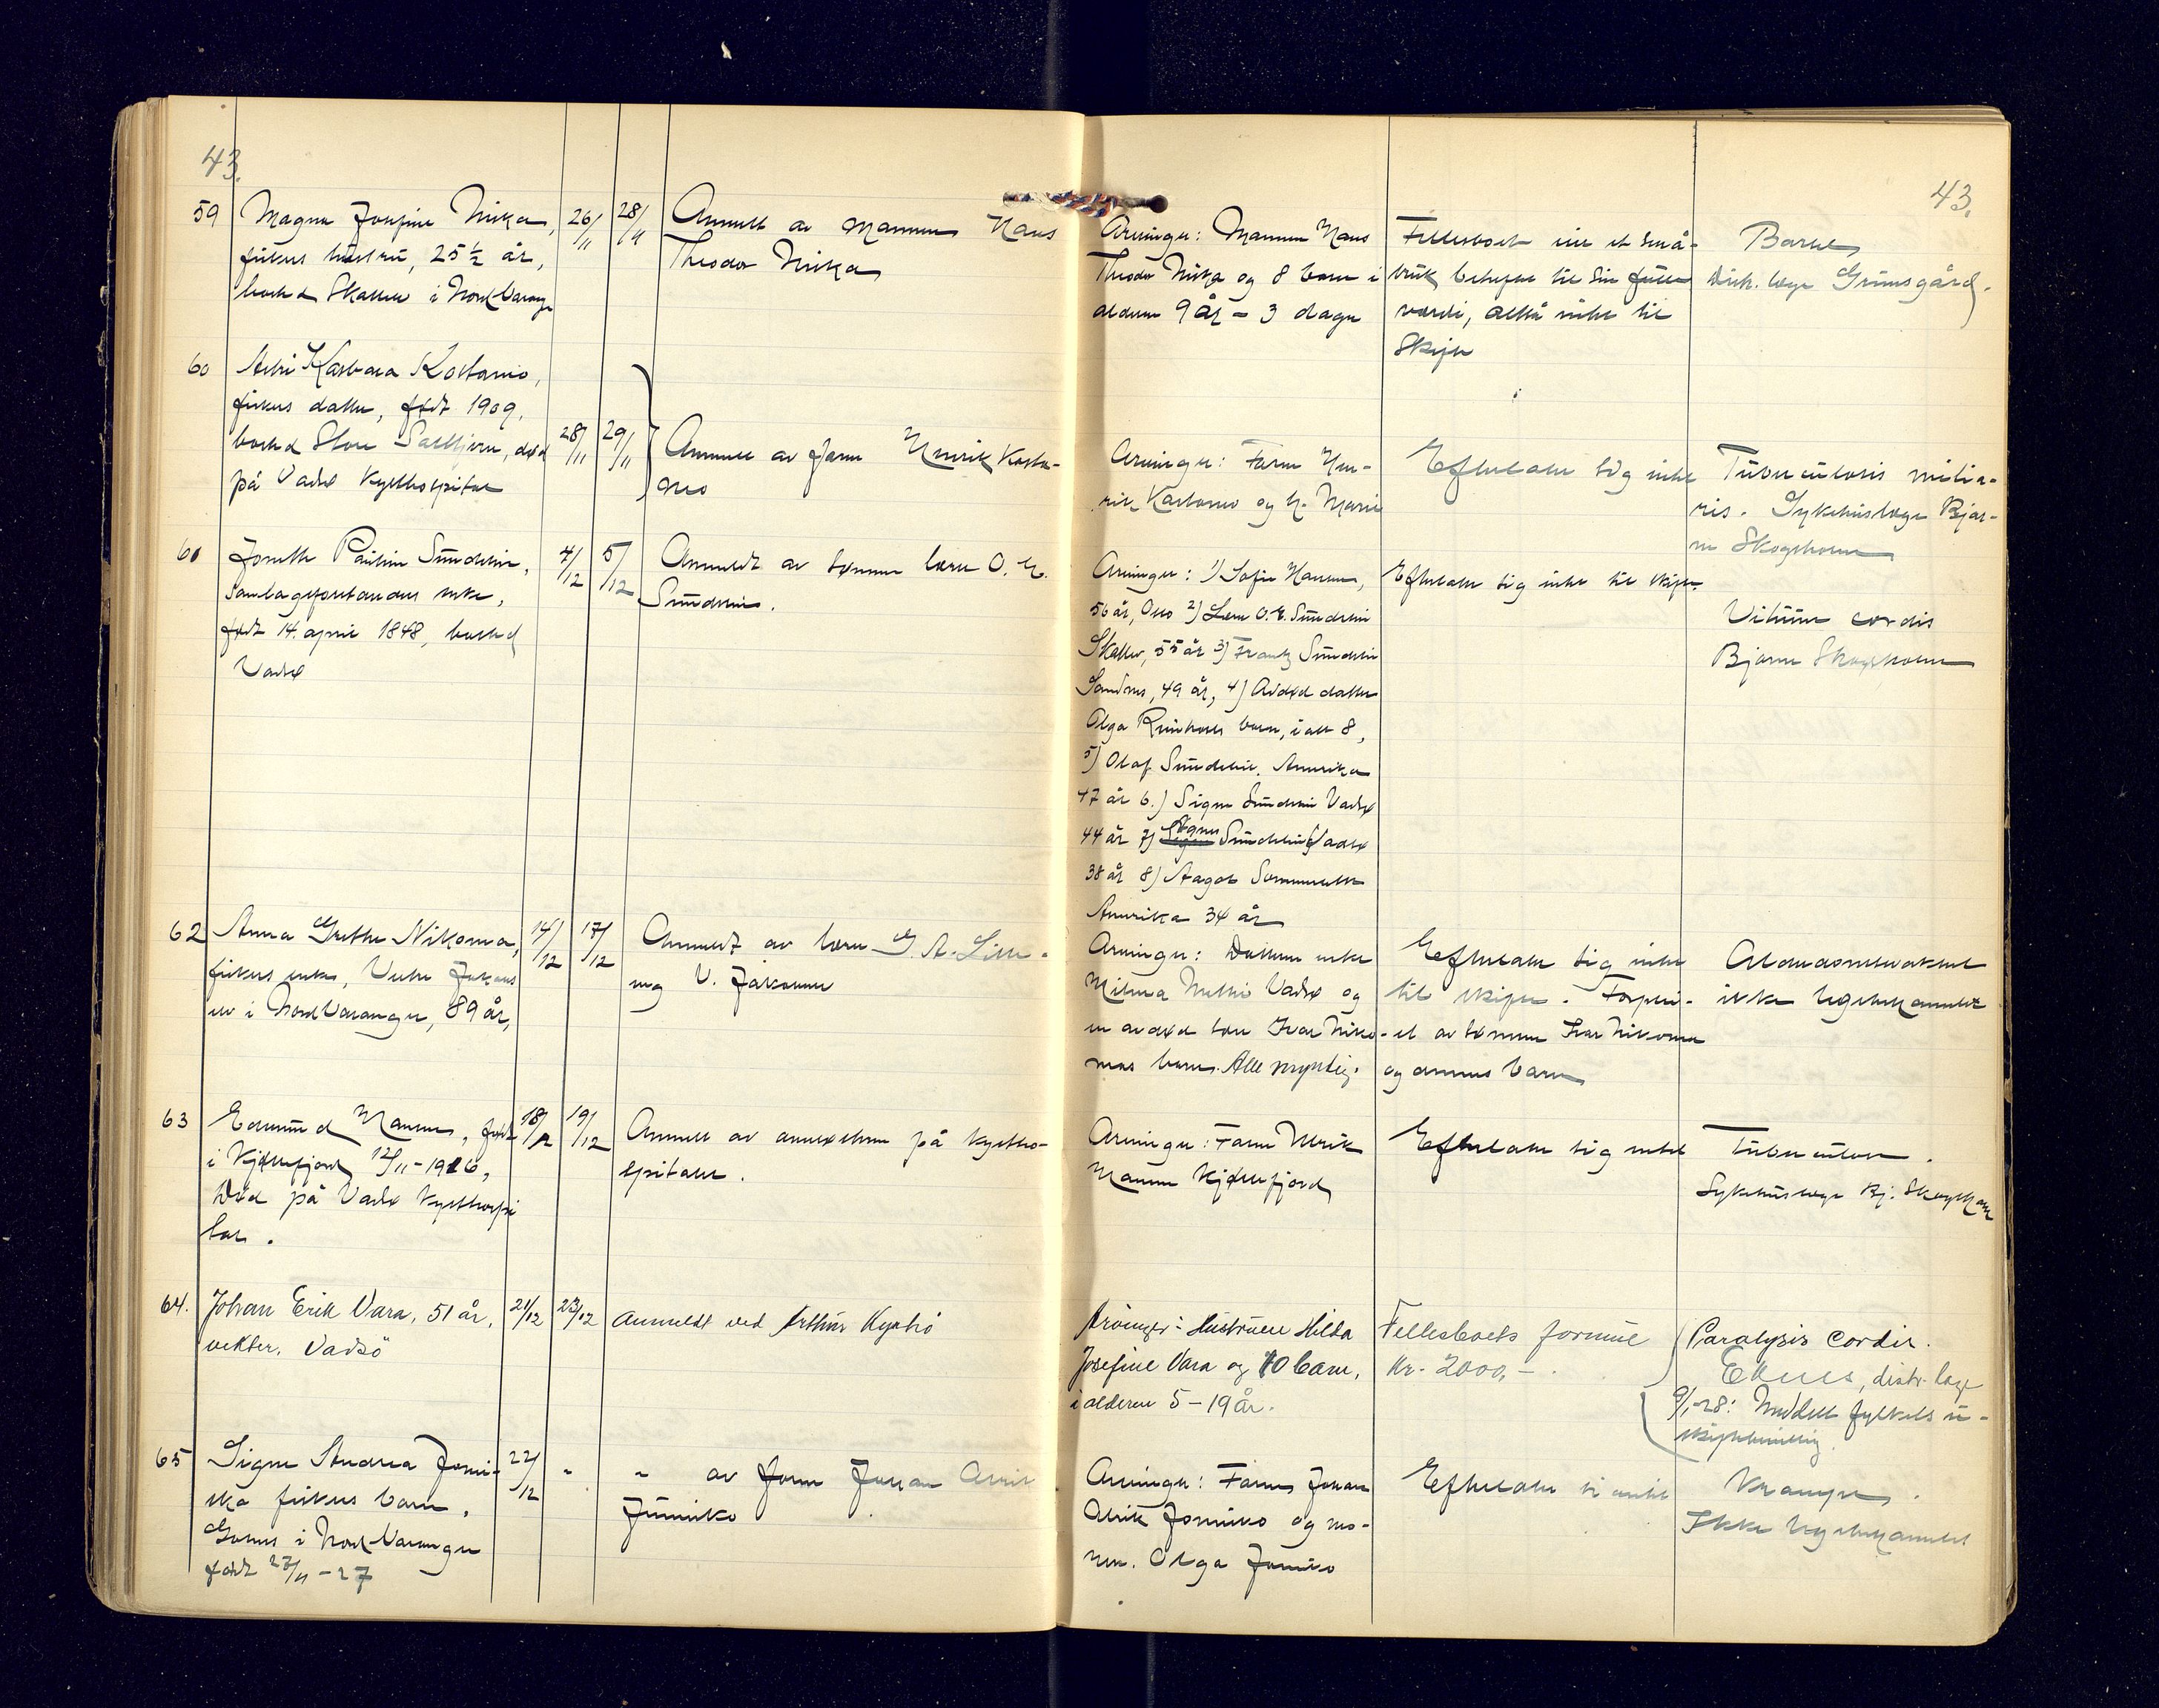 43.
59
Magna Josefine Niska,
fiskers hustru, 25 ½ år,
bosted Skallelv i Nord Varanger
26/11
28/11
Anmeldt av mannen Hans
Theodor Niska
60
Karbara Kostamo,
fiskers datter, født 1909,
bosted Store , død
på Vadsø Kysthospital
28/11
29/11
Anmeldt av faren Henrik Kosta-
mo
61
Pauline Sundelin,
enke,
født 14. april 1848, bosted
Vadsø
4/12
5/12
Anmeldt av sønnen lærer O. E.
Sundelin.
62
Anna Grethe Nikoma,
fiskers enke, Jakobs
elv i Nord Varanger, 89 år,
14/12
17/12
Anmeldt av lærer G. A.
ng V. Jakobselv
63
Edmund Hansen, født
i Kjøllefjord 12/11-1916,
Død på Vadsø Kysthospi
tal.
18/12
19/12
Anmeldt av på Kystho-
spitalet.
64.
Johan Erik Vara, 51 år,
vekter, Vadsö
21/12
23/12
Anmeldt ved Arthur
65
Signe Andrea Jomi-
ska fiskers barn,
i Nord Varanger
født 27/11-27
22/12
"
" av faren Johan

43.
Arvinger: Mannen Hans
Theodor Niska og 8 barn i
alderen 9 år - 3 dager
Fellesboet eier et små-
bruk beheftet til sin fulle
verdi, altså intet til
skifte
Barsel
Distr. læge Grimsgård.
Arvinger: Faren Hen-
rik Kostamo og h. Marie
Efterlater sig intet
Tuberculosis milia-
ris. Sykehuslæge Bjar-
ne Skogsholm
Arvinger: 1) Sofie Hansen,
56 år, Oslo 2) Lærer O. E. Sundelin
Skallelv, 55 år 3) Frantz Sundelin
Sandnes, 49 år, 4) Avdød datter
Olga barn, i alt 8,
5) Olaf Sundelin, Amerika
47 år 6.) Signe Sundelin Vadsø
44 år 7) Agnes Sundelin, Vadsø
38 år 8) Aagot
Amerika 34 år
Efterlater sig intet til skifte.
Vitium cordis
Bjarne Skogsholm
Arvinger: Datteren enke
Milena Vadsø og
en avdød søn Ivar Niko-
mas barn. Alle myndig.
Efterlater sig intet
til skifte. Forplei-
et av sønnen Ivar Nikoma
og dennes barn
Alderdomssvakhet
ikke lægebehandlet
Arvinger: Faren Ulrik
Hansen Kjøllefjord
Efterlater sig intet
Tuberculose.
Sykehuslæge Bj. Skogsholm
Arvinger: Hustruen Hilda
Josefine Vara og 10 barn,
i alderen 5 - 19 år.
Fellesboets formue
Kr. 2000,-
Paralysis cordis.
Eknes, distr. læge
9/1-28: Meddelt fylkets u-
skiftebevilling.
Arvinger: Faren Johan
og mo-
ren Olga
Efterlater si intet
Krampe.
Ikke lægebehandlet